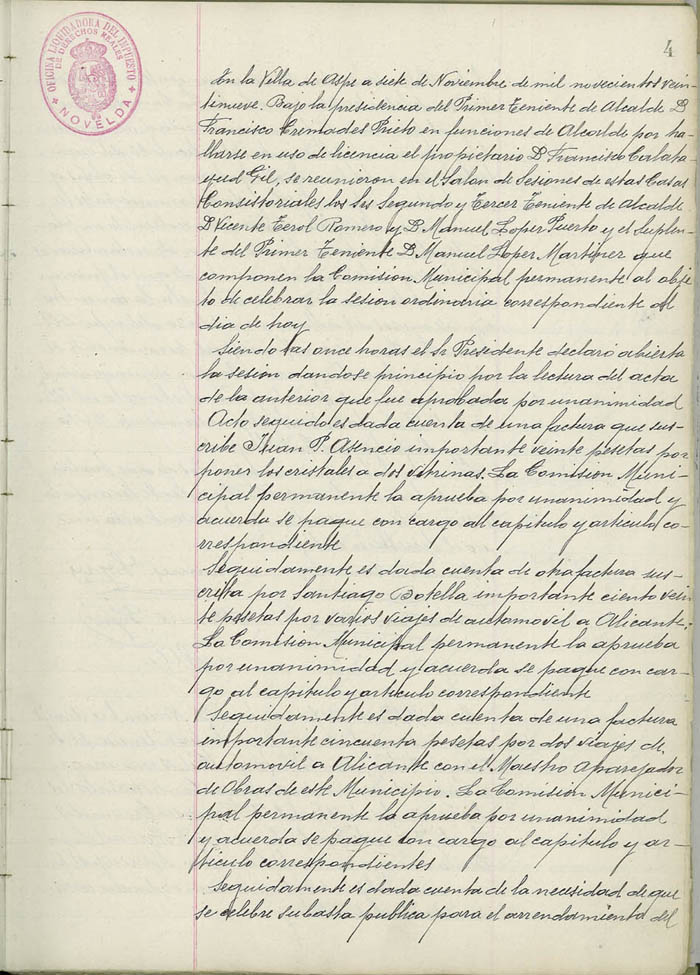 4
OFICINA LIQUIDADORA DEL IMPUESTO
DE DERECHOS REALES
NOVELDA
En la Villa de Aspe a siete de Noviembre de mil novecientos vein-
tinueve. Bajo la presidencia del Primer Teniente de Alcalde D
Francisco Cremades Prieto en funciones de Alcalde por ha-
llarse en uso de licencia el propietario D Francisco Calata-
yud Gil, se reunieron en el Salon de Sesiones de estas Casas
Consistoriales los Srs Segundo y Tercer Teniente de Alcalde
D Vicente Cerol Romero y D Manuel Lopez Puerto y el suplen-
te del Primer Teniente D Manuel Lopez Martinez que
componen la Comision Municipal permanente al obje-
to de celebrar la sesion ordinaria correspondiente al
dia de hoy
Siendo las once horas el Sr Presidente declaró abierta
la sesion dandose principio por la lectura del acta
de la anterior que fue aprobada por unanimidad
Acto seguido es dada cuenta de una factura que sus-
cribe Juan P. Asencio importante veinte pesetas por
poner los cristales a dos vitrinas. La Comision Muni-
cipal permanente la aprueba por unanimidad y
acuerda se pague con cargo al capitulo y articulo co-
rrespondiente
Seguidamente es dada cuenta de otra factura sus-
crita por Santiago Botella importante ciento vein-
te pesetas por varios viajes de automovil a Alicante.
La Comision Municipal permanente la aprueba
por unanimidad y acuerda se pague con car-
go al capitulo y articulo correspondiente
Seguidamente es dada cuenta de una factura
importante cincuenta pesetas por dos viajes de
automovil a Alicante con el Maestro Aparejador
de Obras de este Municipio. La Comision Munici-
pal permanente la aprueba por unanimidad
y acuerda se pague con cargo al capitulo y ar-
ticulo correspondientes
Seguidamente es dada cuenta de la necesidad de que
se celebre subasta publica para el arrendamiento del